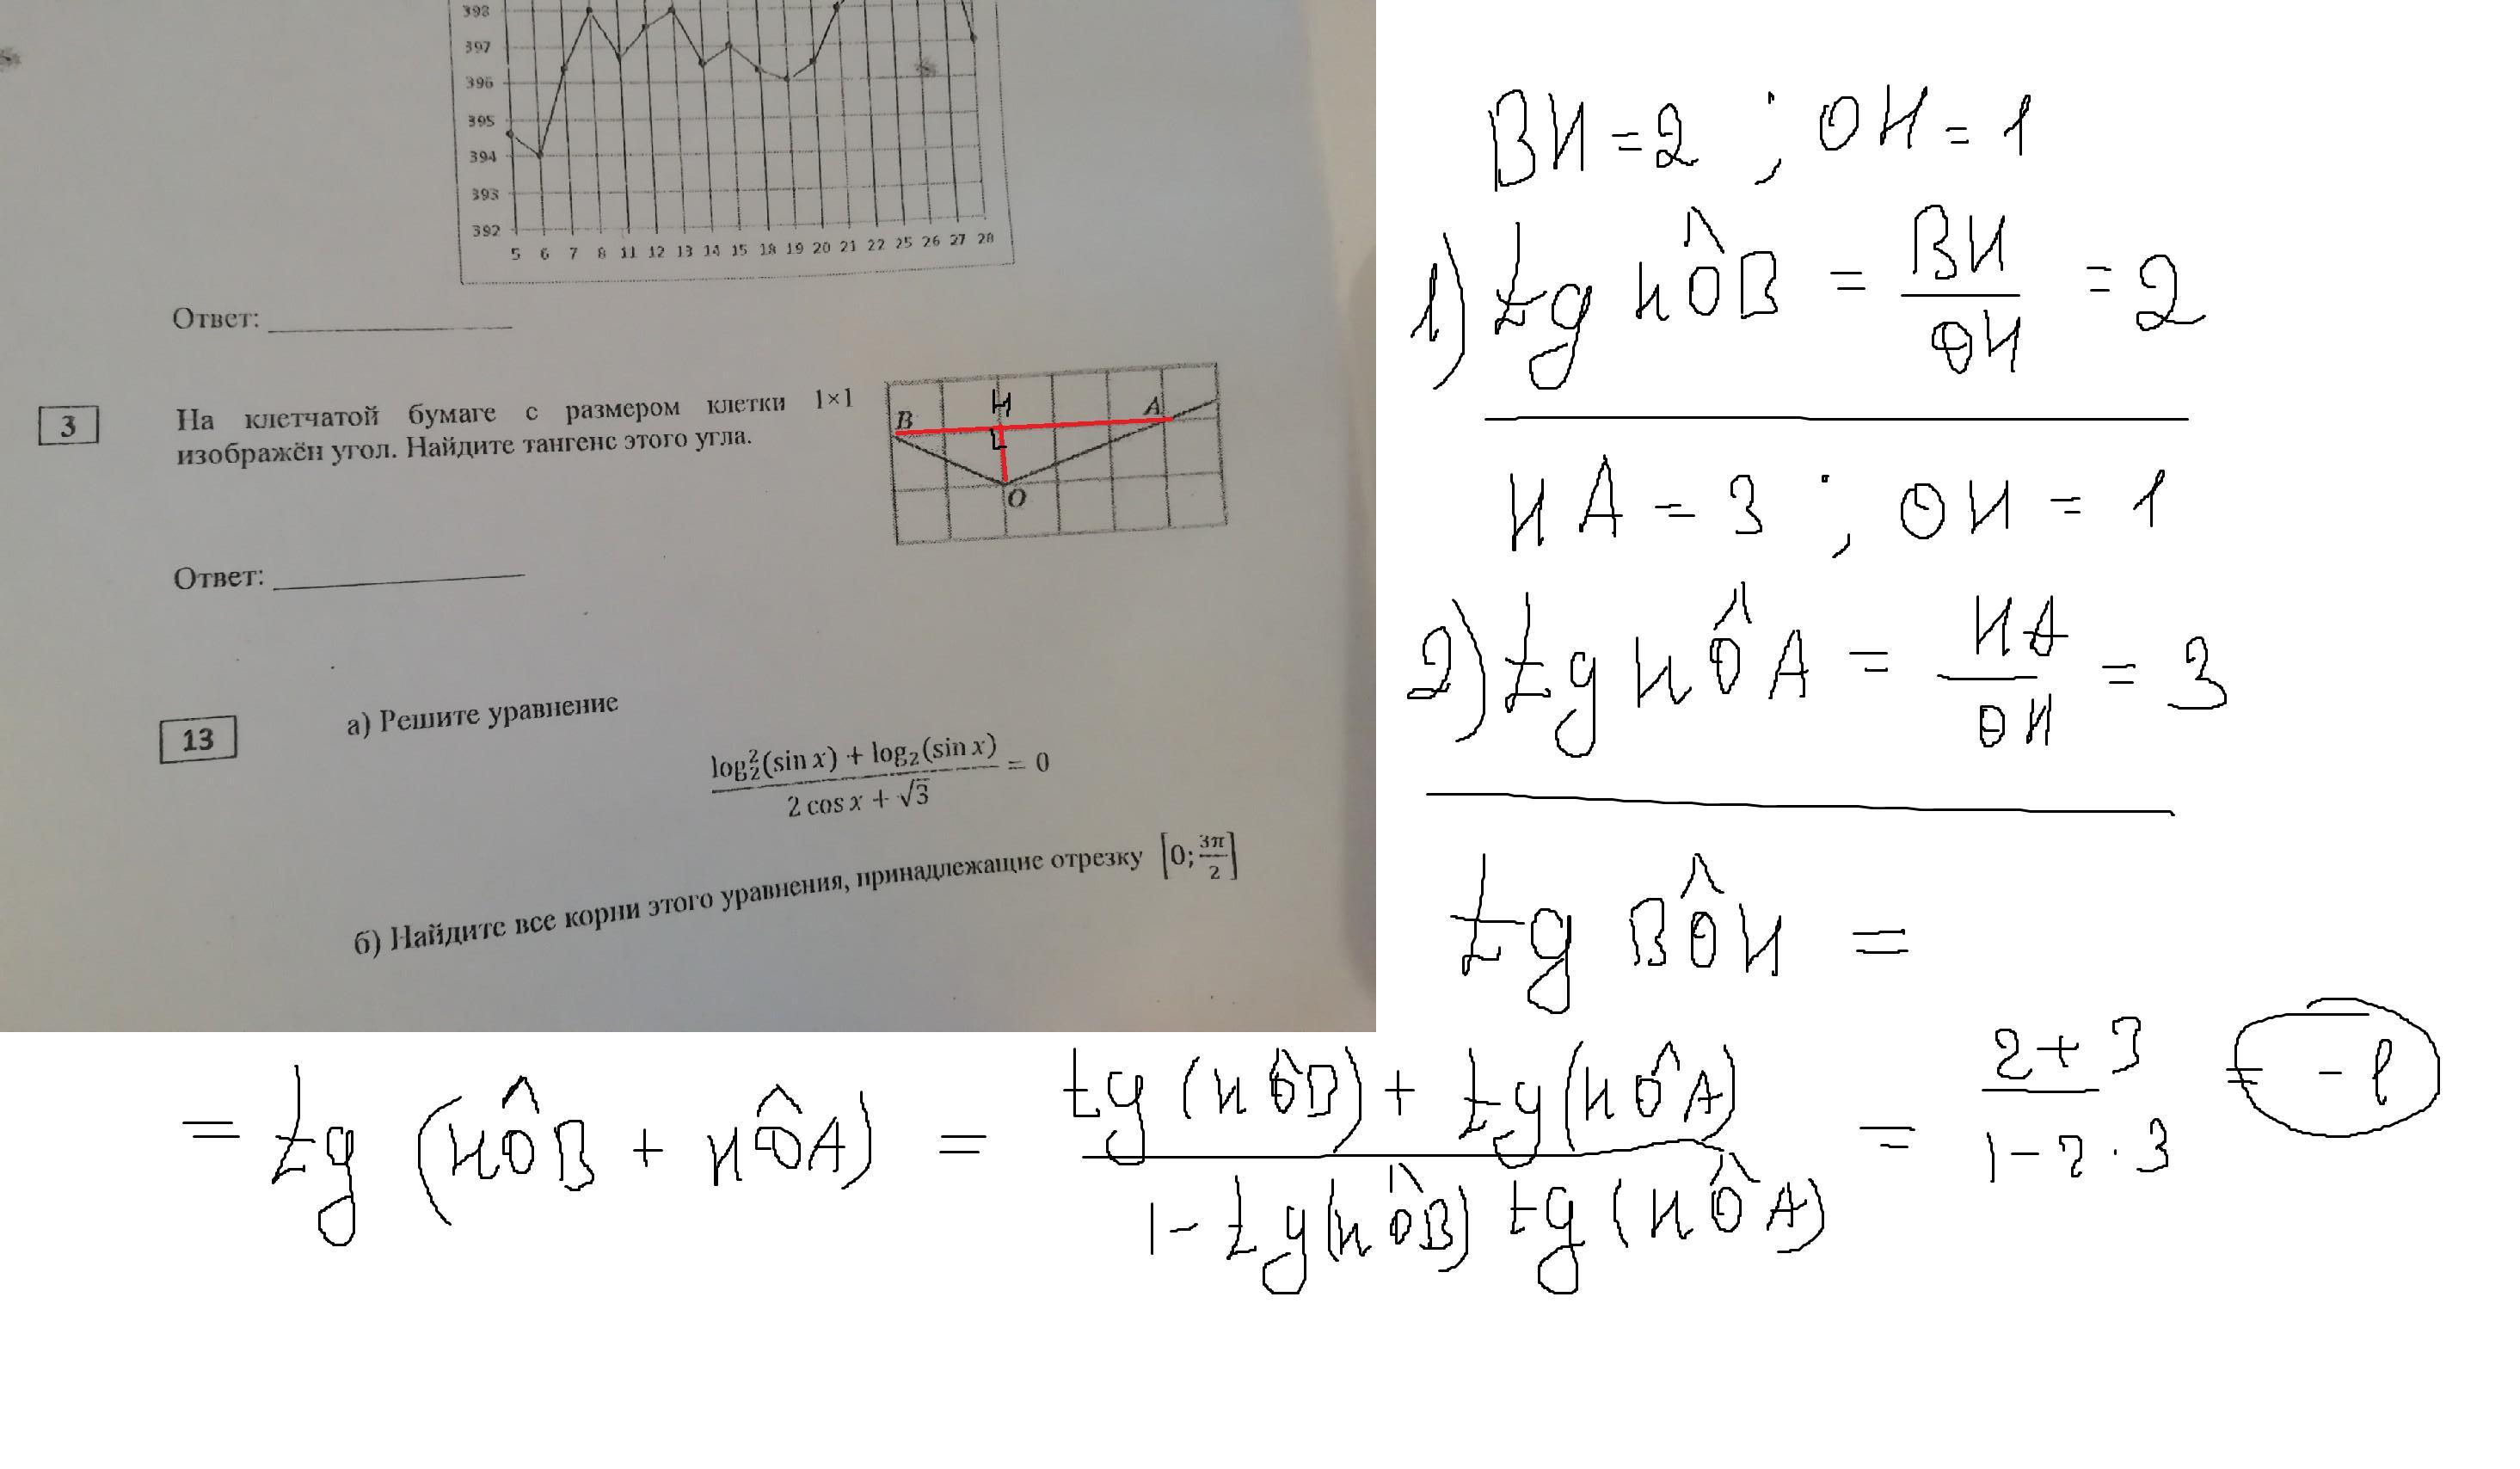 398
397
396
395
394
393
392
5 6 7 8 11 12 13 14 15 18 19 20 21 22 25 26 27 28
Ответ:
3
На клетчатой бумаге с размером клетки 1×1
изображён угол. Найдите тангенс этого угла.
B H A
O
Ответ:
13
а) Решите уравнение
log₂²(sin x) + log₂(sin x)
2 cos x + √3
= 0
б) Найдите все корни этого уравнения, принадлежащие отрезку [0; 3π/2]
BH = 2 ; OH = 1
1) tg HOB = BH / OH = 2
HA = 3 ; OH = 1
2) tg HOA = HA / OH = 3
tg BOH =
= tg (HOB + HOA) = tg (HOB) + tg (HOA) / 1 - tg (HOB) tg (HOA) = 2 + 3 / 1 - 2 · 3 = - 1